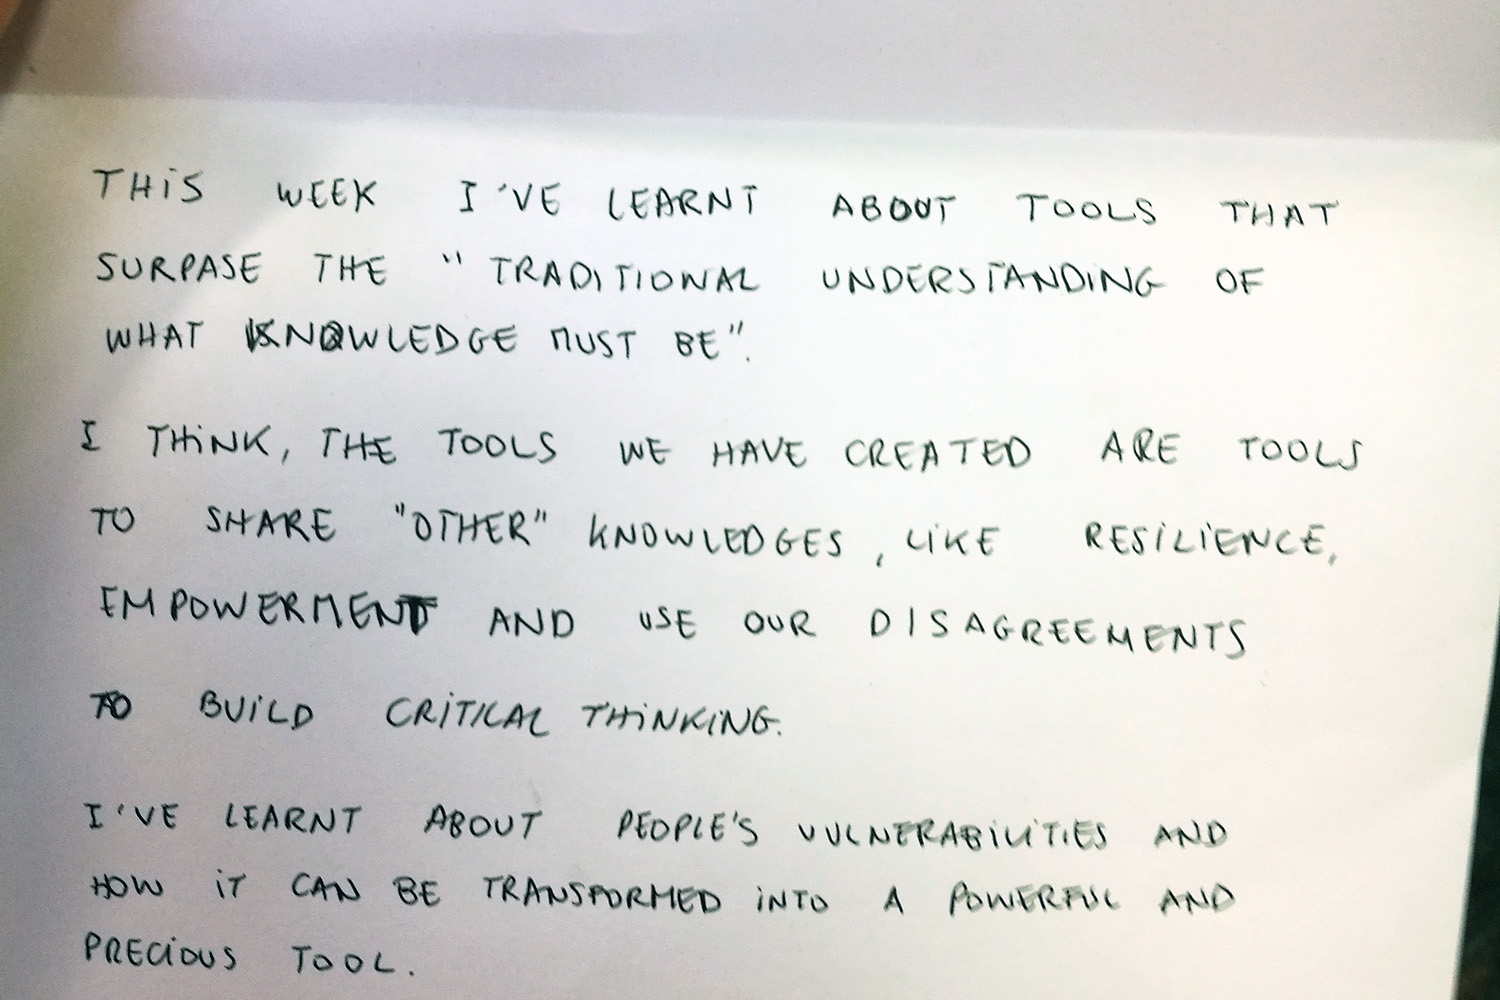 THIS WEEK I'VE LEARNT ABOUT TOOLS THAT
SURPASE THE "TRADITIONAL UNDERSTANDING OF
WHAT KNOWLEDGE MUST BE".
I THINK, THE TOOLS WE HAVE CREATED ARE TOOLS
TO SHARE "OTHER" KNOWLEDGES, LIKE RESILIENCE,
EMPOWERMENT AND USE OUR DISAGREEMENTS
TO BUILD CRITICAL THINKING.
I'VE LEARNT ABOUT PEOPLE'S VULNERABILITIES AND
HOW IT CAN BE TRANSFORMED INTO A POWERFUL AND
PRECIOUS TOOL.